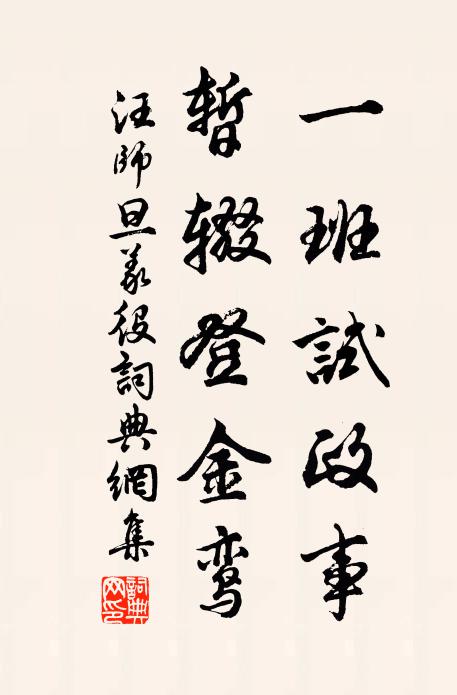 一班試政事
暂辍登金鸾
汪師旦義役詞典網集
詞典网印